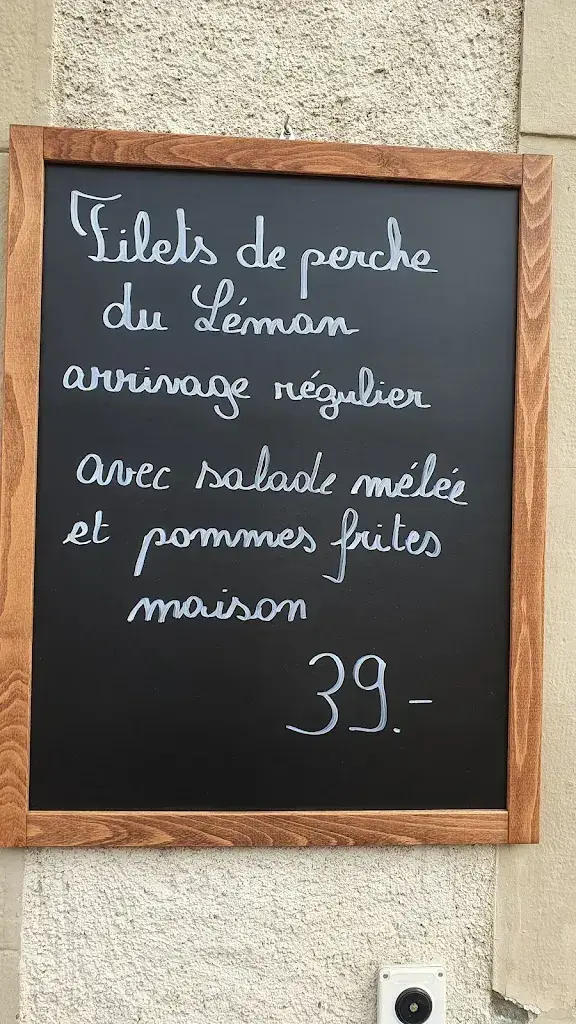 Filets de perche
du Léman
arrivage régulier
avec salade mélée
et pommes frites
maison
39.-